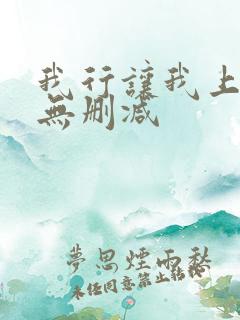 我行讓我上
無刪减
夢思煙雨愁
未经同意禁止转载